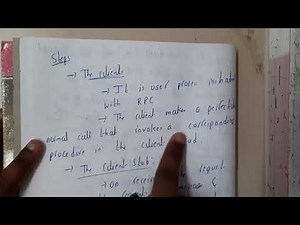 Steps
→ The client
→ It is user process initiation
with RPC
→ The client makes a perfectly
normal call that invokes a corresponding
procedure in the client
→ The client stub:
→ on receive request